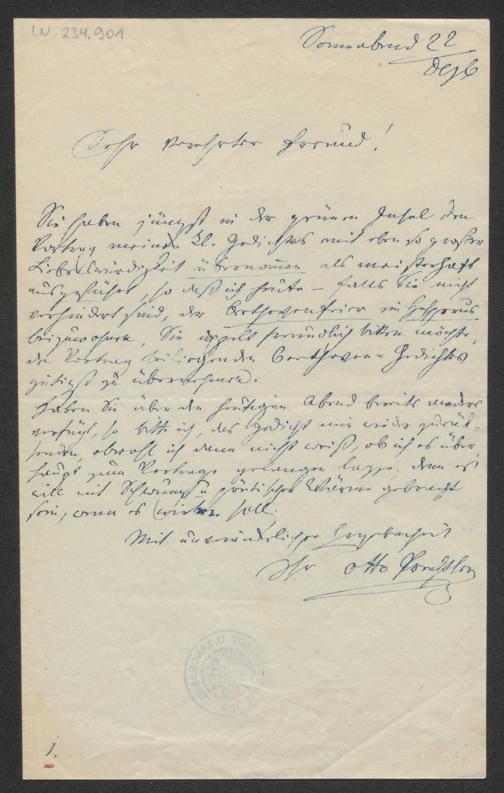 I.N. 234.901
Sonnabend 22
Dezb
Sehr verehrter Freund!
Sie haben jüngst in der grünen Insel den
Vortrag meines kl. Gedichtes mit eben so großer
Liebenswürdigkeit übernommen als meisterhaft
ausgeführt, so daß ich heute – falls Sie nicht
verhindert sind, der Beethovenfeier im Hesperus
beizuwohnen, Sie freundlich bitten möchte,
den Vortrag beiliegenden Beethoven-Gedichtes
gütigst zu übernehmen.
Haben Sie über den heutigen Abend bereits anders
verfügt, so bitte ich, das Gedicht mir wieder zurück-
senden, obwohl ich dann nicht weiß, ob ich es über-
haupt zum Vortrage gelangen lasse, denn es
will mit Schwung u poetischer Wärme gebracht
sein, wenn es wirken soll.
Mit unveränderlicher Ergebenheit
Ihr Otto Prechtler
1.